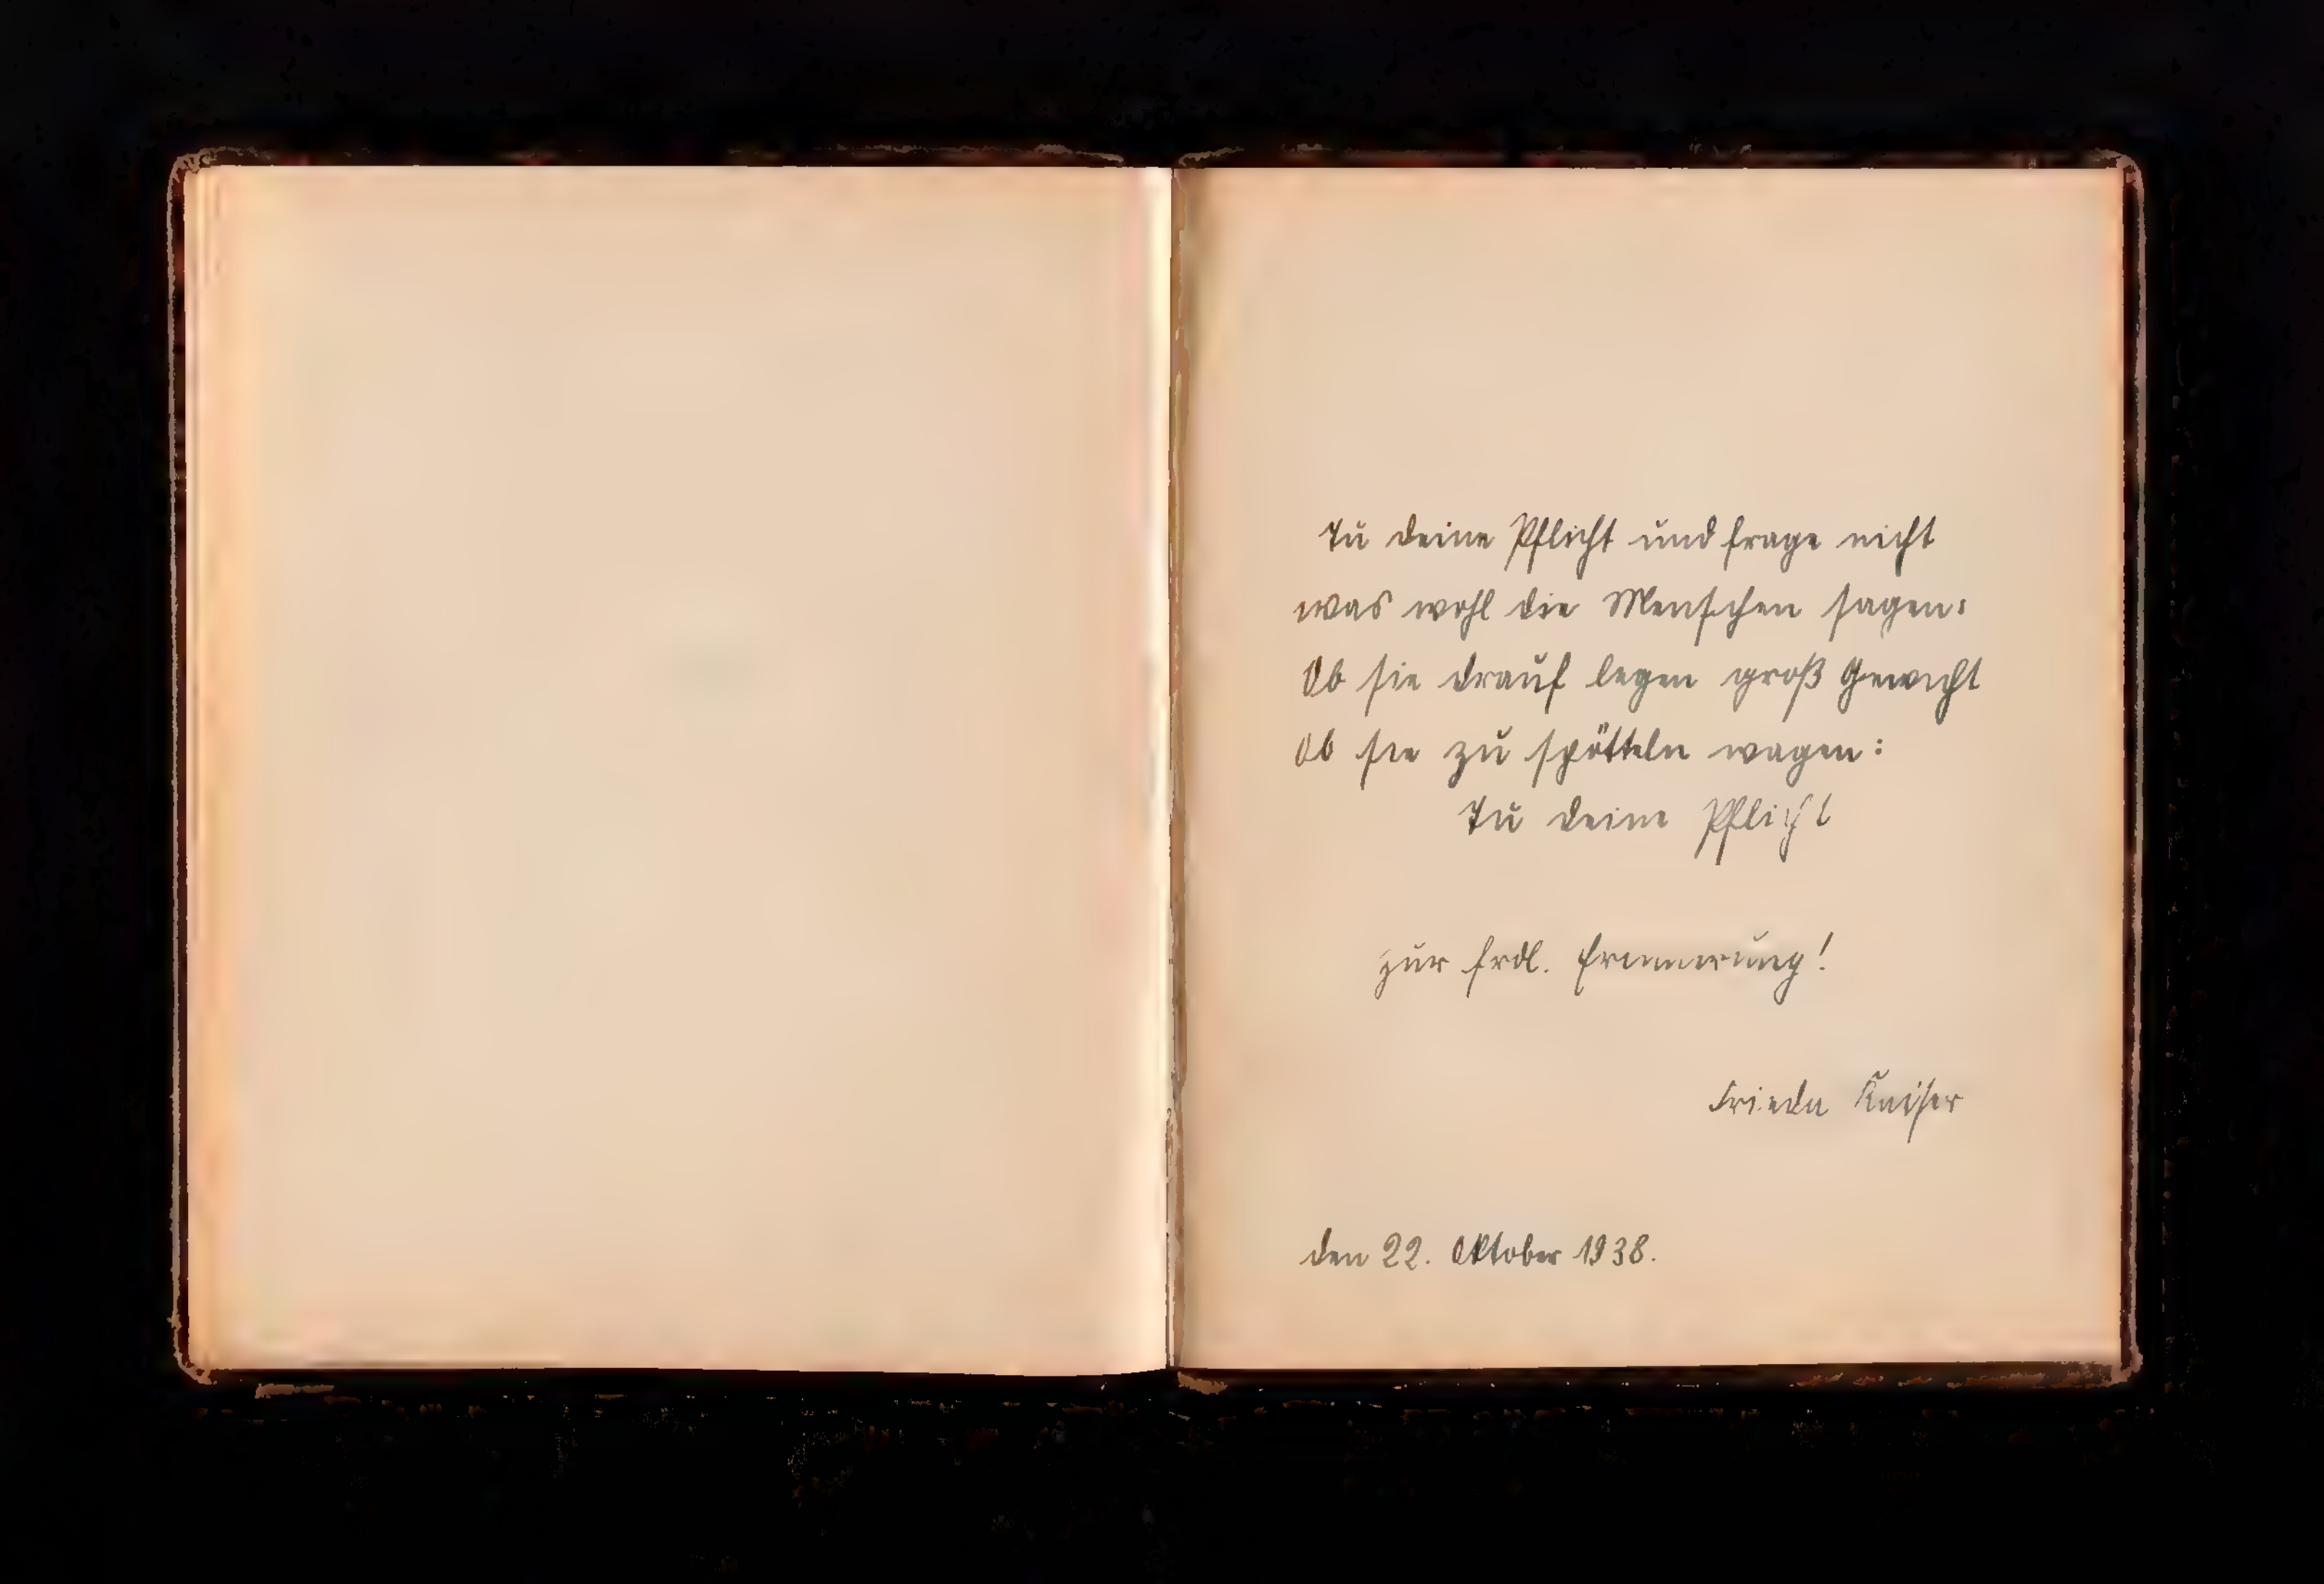 Tu deine Pflicht und frage nicht
was wohl die Menschen sagen:
Ob sie drauf legen groß Gewicht
Ob sie zu spötteln wagen:
Tu deine Pflicht
zur frdl. Erinnerung!
Frieda Kaiser
den 22. Oktober 1938.